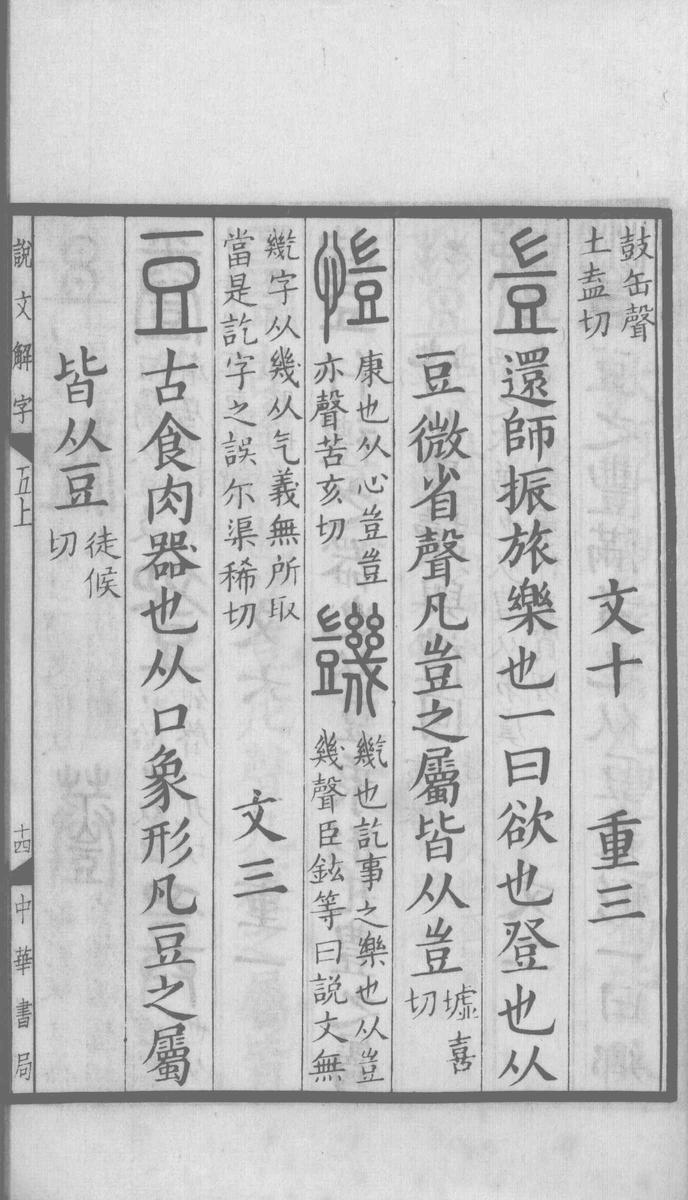 鼓缶聲
土盍切
文十　重三
豈還師振旅樂也一曰欲也登也从
豆微省聲凡豈之屬皆从豈
墟喜
切
愷
康也从心豈豈
亦聲苦亥切
也訖事之樂也从豈
幾聲臣鉉等曰說文無
字从幾从气義無所取
當是訖字之誤尔渠稀切
文三
豆古食肉器也从口象形凡豆之屬
皆从豆
徒候
切
說文解字 五上 十四 中華書局